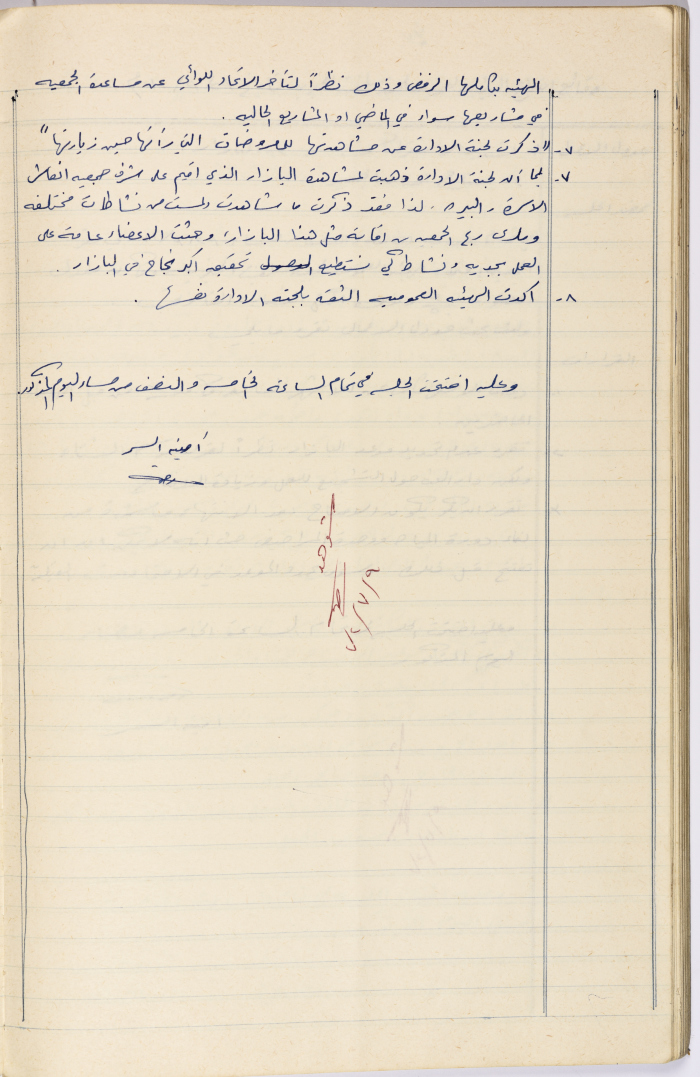 الهيئه بكاملها الرفض وذلك نظراً لتأخر الاتحاد اللوائي عن مساعدة الجمعيه
في مشاريعها سواء في الماضي او المشاريع الحاليه .
٧- " ذكرت لجنة الادارة عن مشاهدتها للمعروضات التي رأتها حين زيارتها "
٧- بما أن لجنة الادارة ذهبت لمشاهدة البازار الذي اقيم على شرف جمعيه انعاش
الاسرة - البيره . لذا فقد ذكرت ما شاهدت ولمست من نشاطات مختلفه
ومدى ربح الجمعيه من اقامة مثل هذا البازار، وحثت الاعضاء عامة على
العمل بجديه ونشاط كي نستطيع الوصول تحقيق اكبر نجاح في البازار .
٨- اكدت الهيئه العموميه الثقه بلجنه الادارة نفسها .
وعليه اختتمت الجلسه في تمام الساعه الخامسه والنصف من مساء اليوم المذكور.
أمينه السر
شوهد
٩/٧/